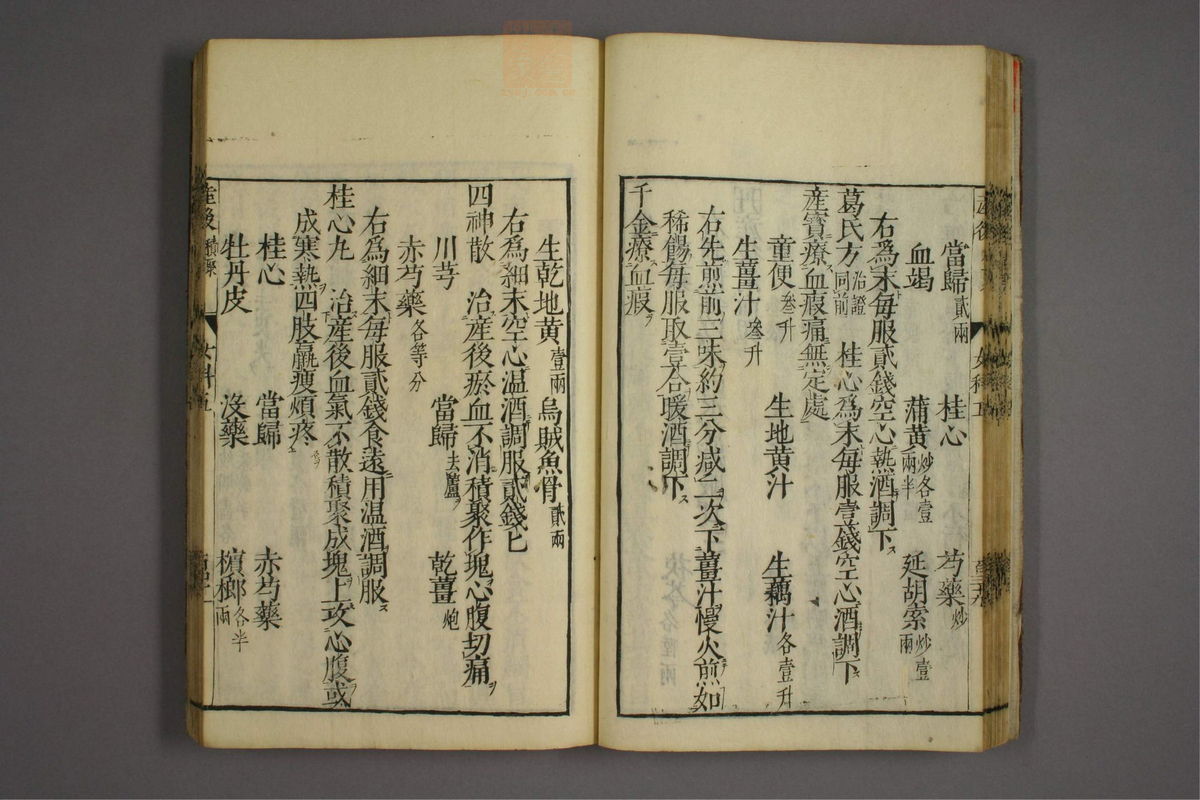 當歸貳兩 桂心 芍藥炒
血竭 蒲黃炒各壹兩半 延胡索炒壹兩
右爲末每服貳錢空心熱酒調下
葛氏方治證同前 桂心爲末每服壹錢空心酒調下
産寶療血瘕痛無定處
童便叄升 生地黃汁 生藕汁各壹升
生薑汁叄升
右先煎前三味約三分减二次下薑汁慢火煎如
稀餳每服取壹合暖酒調下
千金療血瘕
生乾地黃壹兩 烏賊魚骨貳兩
右爲細末空心温酒調服貳錢匕
四神散 治産後瘀血不消積聚作塊心腹切痛
川芎 當歸去蘆 乾薑炮
赤芍藥各等分
右爲細末每服貳錢食遠用温酒調服
桂心丸 治産後血氣不散積聚成塊上攻心腹或
成寒熱四肢羸瘦煩疼
桂心 當歸 赤芍藥
牡丹皮 没藥 檳榔各半兩
産後積聚 女科五